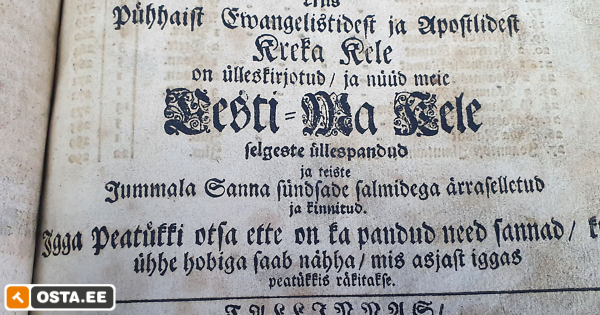 Pühhaist Ewangelistidest ja Apostlidest
Kreka Kele
on ülleskirjotud/ ja nüüd meie
Eesti-Ma Kele
selgeste üllespandud
ja teiste
Jummala Sanna sündsade salmidega ärraselletud
ja kinnitud.
Igga Peatükki otsa ette on ka pandud need sannad/
ühhe hobiga saab nähha/ mis asjast iggas
peatükkis räkitakse.
TALLINNAS/
OSTA.EE